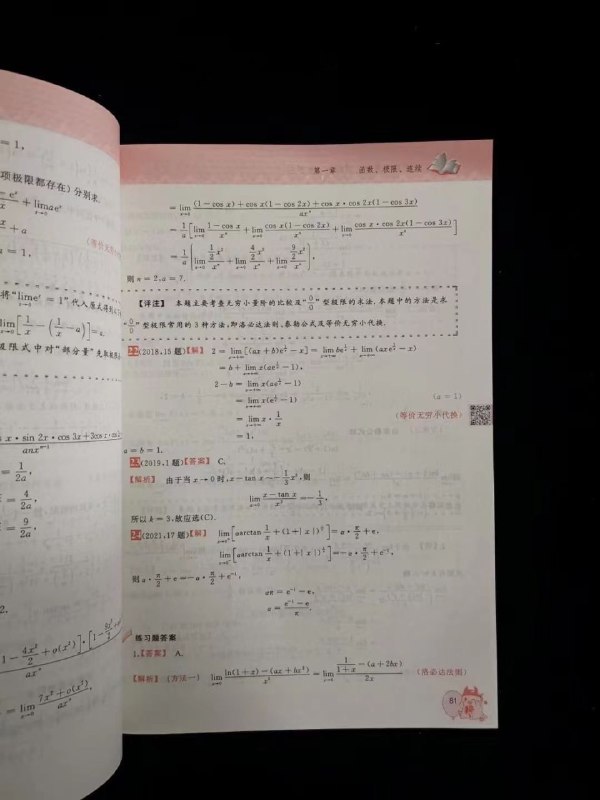 = 1,
项极限都存在)分别求.
+ lim ae^x
x→0
x + a
(等价无穷
a = 1,
将"lim e^x = 1"代入原式得到
lim[1/x - (1/x - a)] = a.
极限式中对"部分量"先取极限
s x · sin 2x · cos 3x + 3cos x ·
anx^{n-1}
= 1/2a,
= 4/2a,
= 9/2a,
2.
1 - 4x²/2 + o(x²)] · [1 -
ax^n
= lim_{x→0} (7x² + o(x²))/ax^n,
第一章 函数、极限、连续
= lim_{x→0} ((1-cos x)+cos x(1-cos 2x)+cos x·cos 2x(1-cos 3x))/ax^n
= 1/a [lim_{x→0} (1-cos x)/x^n + lim_{x→0} (cos x(1-cos 2x))/x^n + lim_{x→0} (cos x·cos 2x(1-cos 3x))/x^n]
= 1/a [lim_{x→0} (1/2 x²)/x^n + lim_{x→0} (4/2 x²)/x^n + lim_{x→0} (9/2 x²)/x^n],
则 n = 2,a = 7.
【评注】 本题主要考查无穷小量阶的比较及"0/0"型极限的求法,本题中的方法是求
"0/0"型极限常用的3种方法,即洛必达法则、泰勒公式及等价无穷小代换.
22 (2018,15题)【解】 2 = lim_{x→+∞}[(ax+b)e^{1/x} - x] = lim_{x→+∞} be^{1/x} + lim_{x→+∞}(axe^{1/x} - x)
= b + lim_{x→+∞} x(ae^{1/x} - 1)
2 - b = lim_{x→+∞} x(ae^{1/x} - 1)
= lim_{x→+∞} x(e^{1/x} - 1) (a = 1)
= lim_{x→+∞} x · 1/x (等价无穷小代换)
= 1,
a = b = 1.
23 (2019,1题)【答案】 C.
【解析】 由于当 x → 0 时,x - tan x ~ -1/3 x³,则
lim_{x→0} (x - tan x)/x³ = -1/3,
所以 k = 3,故应选(C).
24 (2021,17题)【解】 lim_{x→0⁺}[a arctan 1/x + (1+|x|)^{1/x}] = a · π/2 + e,
lim_{x→0⁻}[a arctan 1/x + (1+|x|)^{1/x}] = -a · π/2 + e^{-1},
则 a · π/2 + e = -a · π/2 + e^{-1},
aπ = e^{-1} - e,
a = (e^{-1} - e)/π.
练习题答案
1.【答案】 A.
【解析】 (方法一) lim_{x→0} (ln(1+x)-(ax+bx²))/x² = lim_{x→0} (1/(1+x) - (a+2bx))/2x (洛必达法则)
81